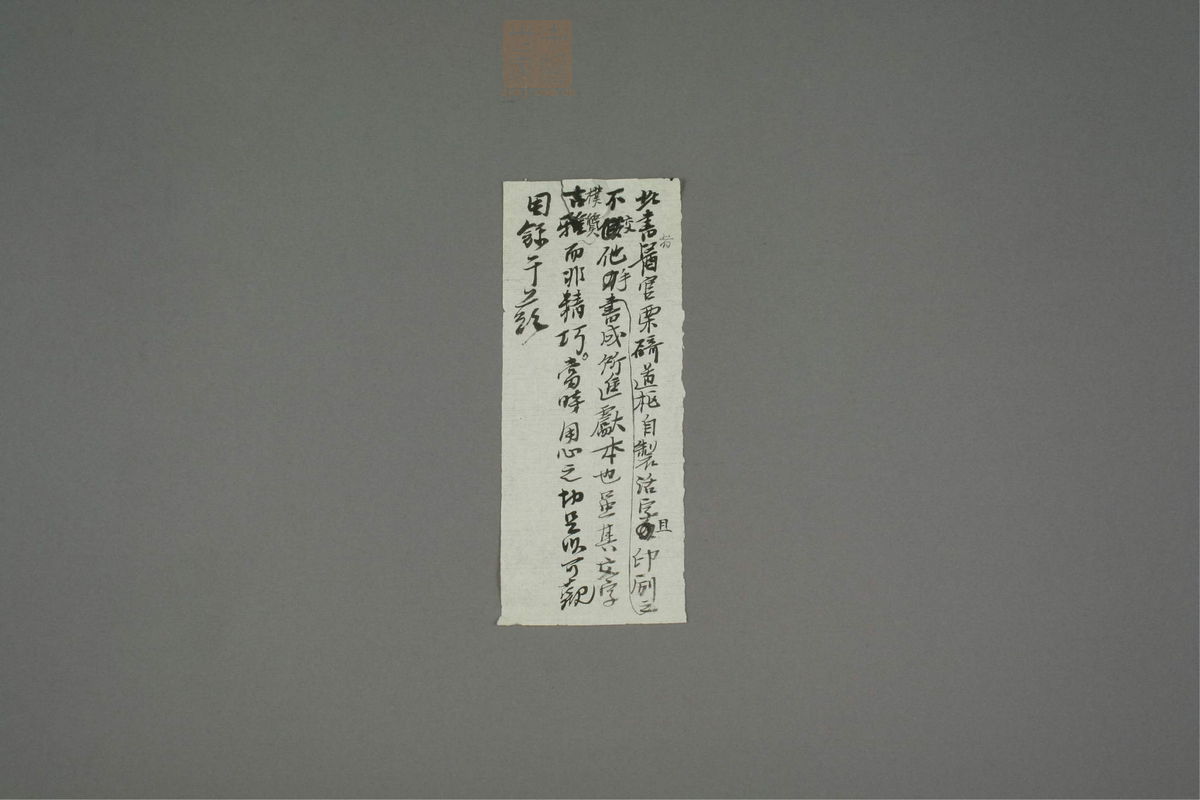 此書醫官栗碕道枢自製活字且印刷之
不交他手書成所進獻本也 其文字
樸質古雅而非精巧。當時用心之 足以可觀
因錄于